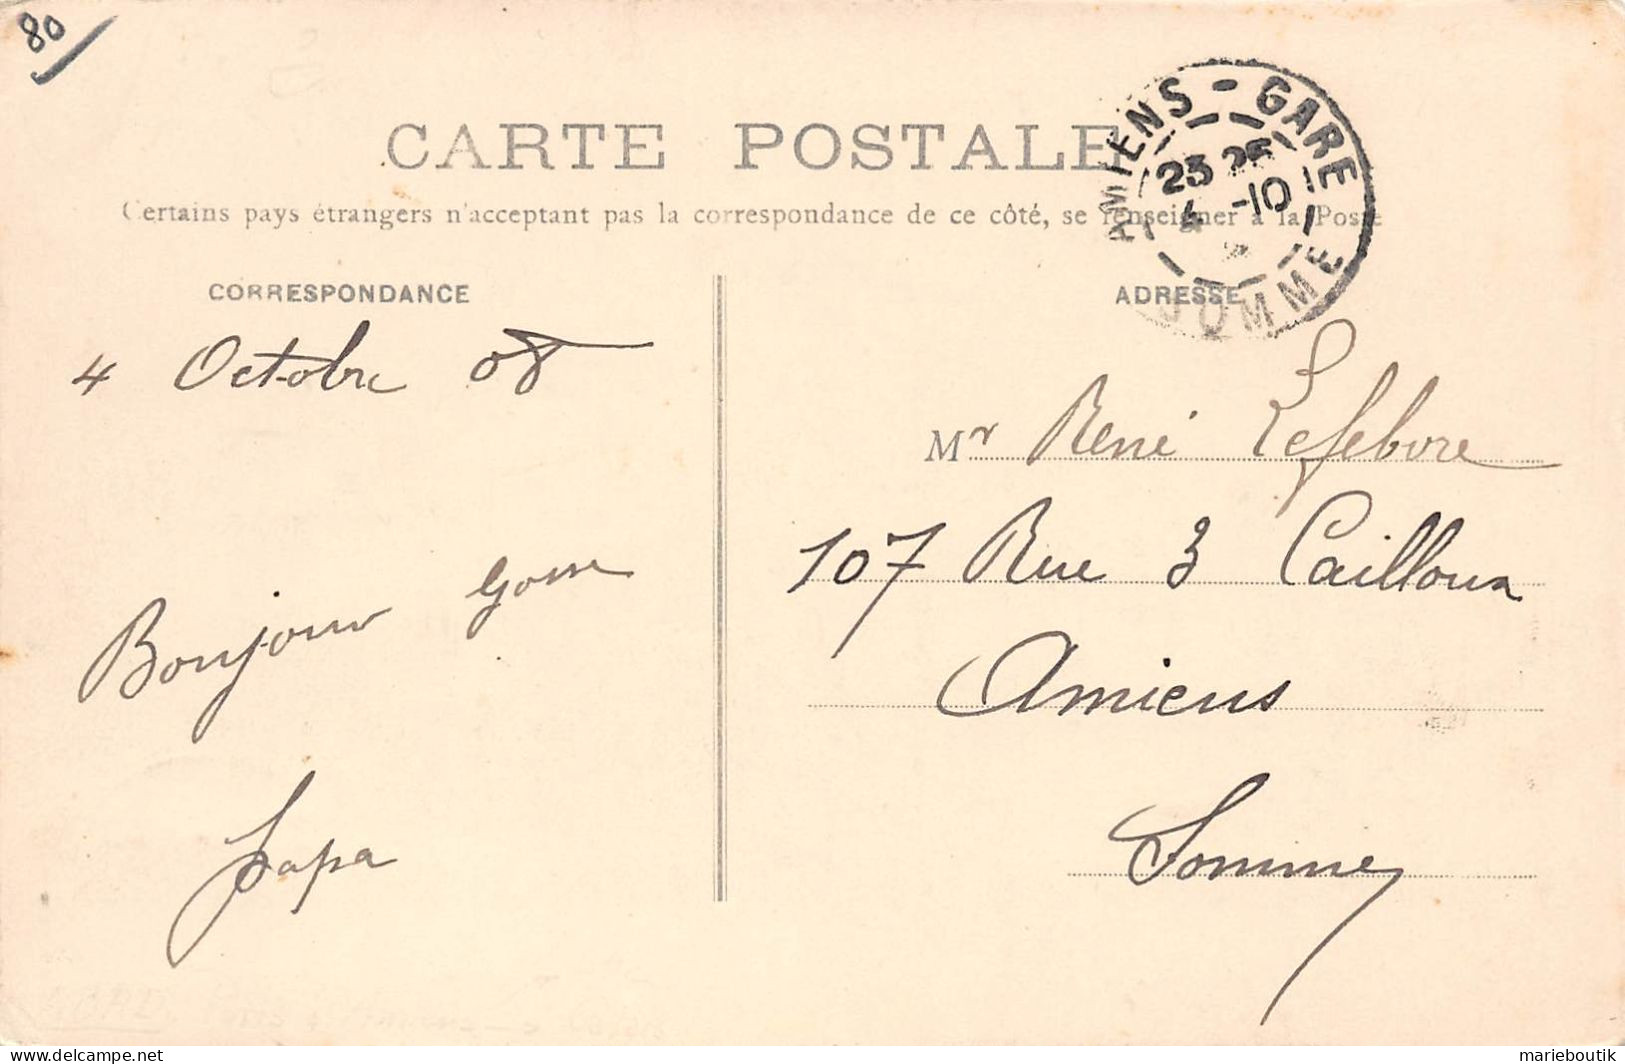 80
CARTE POSTALE
Certains pays étrangers n'acceptant pas la correspondance de ce côté, se renseigner à la Poste
AMIENS - GARE
23 25
4 -10
SOMME
CORRESPONDANCE
4 Octobre 08
Bonjour gosse
Papa
ADRESSE
Mr René Lefebvre
107 Rue 3 Cailloux
Amiens
Somme
delcampe.net
marieboutik